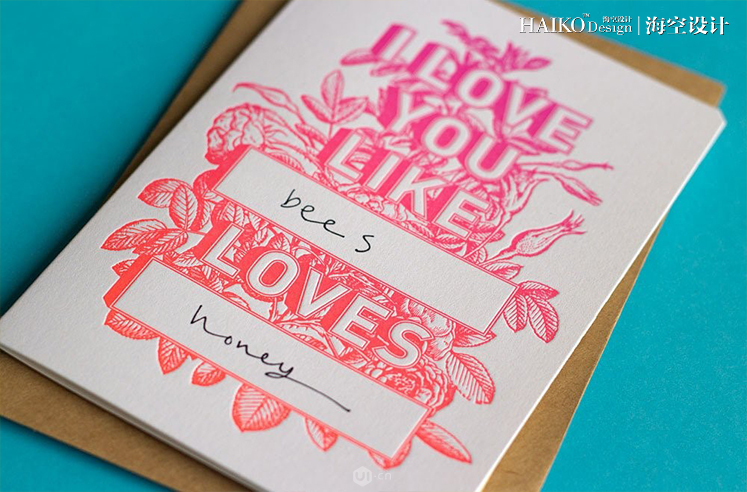 HAIKO™ 海空设计 Design | 海空设计
I LOVE
YOU
LIKE
bees
LOVES
honey